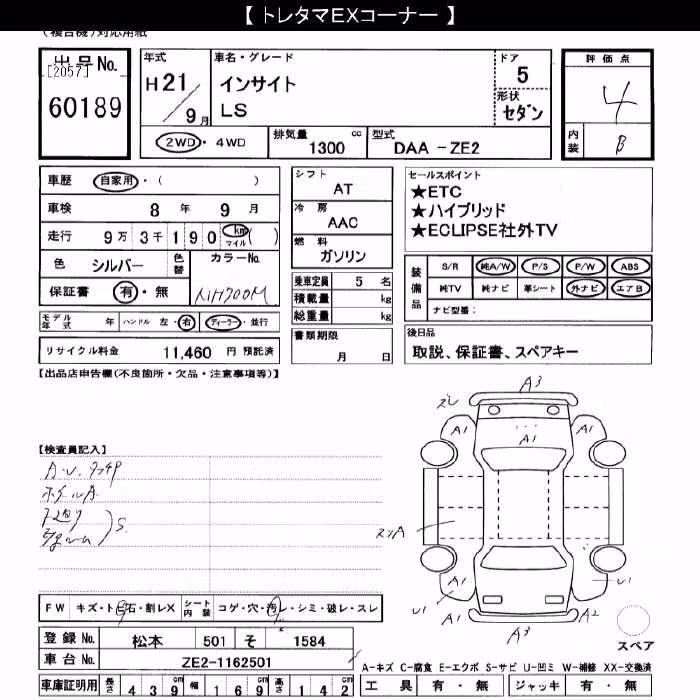 【 トレタマEXコーナー 】
(複合機)対応用紙
出品No.
[2057]
60189
年式
H 21
9月
車名・グレード
インサイト
LS
ドア
5
形状
セダン
評価点
4
内装
B
2WD・4WD
排気量 1300 cc
型式 DAA -ZE2
車歴 自家用・( )
車検 8年 9月
走行 9万3千190 km マイル ( )
色 シルバー 色替
カラーNo.
NH700M
保証書 有・無
シフト
AT
冷房
AAC
燃料
ガソリン
乗車定員 5 名
積載量 kg
総重量 kg
セールスポイント
★ETC
★ハイブリッド
★ECLIPSE社外TV
装備品
S/R 純A/W P/S P/W ABS
純TV 純ナビ 革シート 外ナビ エアB
ナビ型番:
モデル年式 年 ハンドル 左・右 ディーラー・並行
リサイクル料金 11,460 円 預託済
書類期限
月 日
後日品
取説、保証書、スペアキー
【出品店申告欄(不良箇所・欠品・注意事項等)】
【検査員記入】
A3
ズレ
A1
A1
A1
A.U.
ホイールA
S.
スリA
A1
A1
U1
U1
A3
A2
スペア
FW キズ・トビ石・割レX シート内装 コゲ・穴・汚レ・シミ・破レ・スレ
登録No. 松本 501 そ 1584
車台No. ZE2-1162501
A-キズ C-腐食 E-エクボ S-サビ U-凹ミ W-補修 XX-交換済
車庫証明用 長さ 439cm 幅 169cm 高さ 142cm
工具 有・無 ジャッキ 有・無